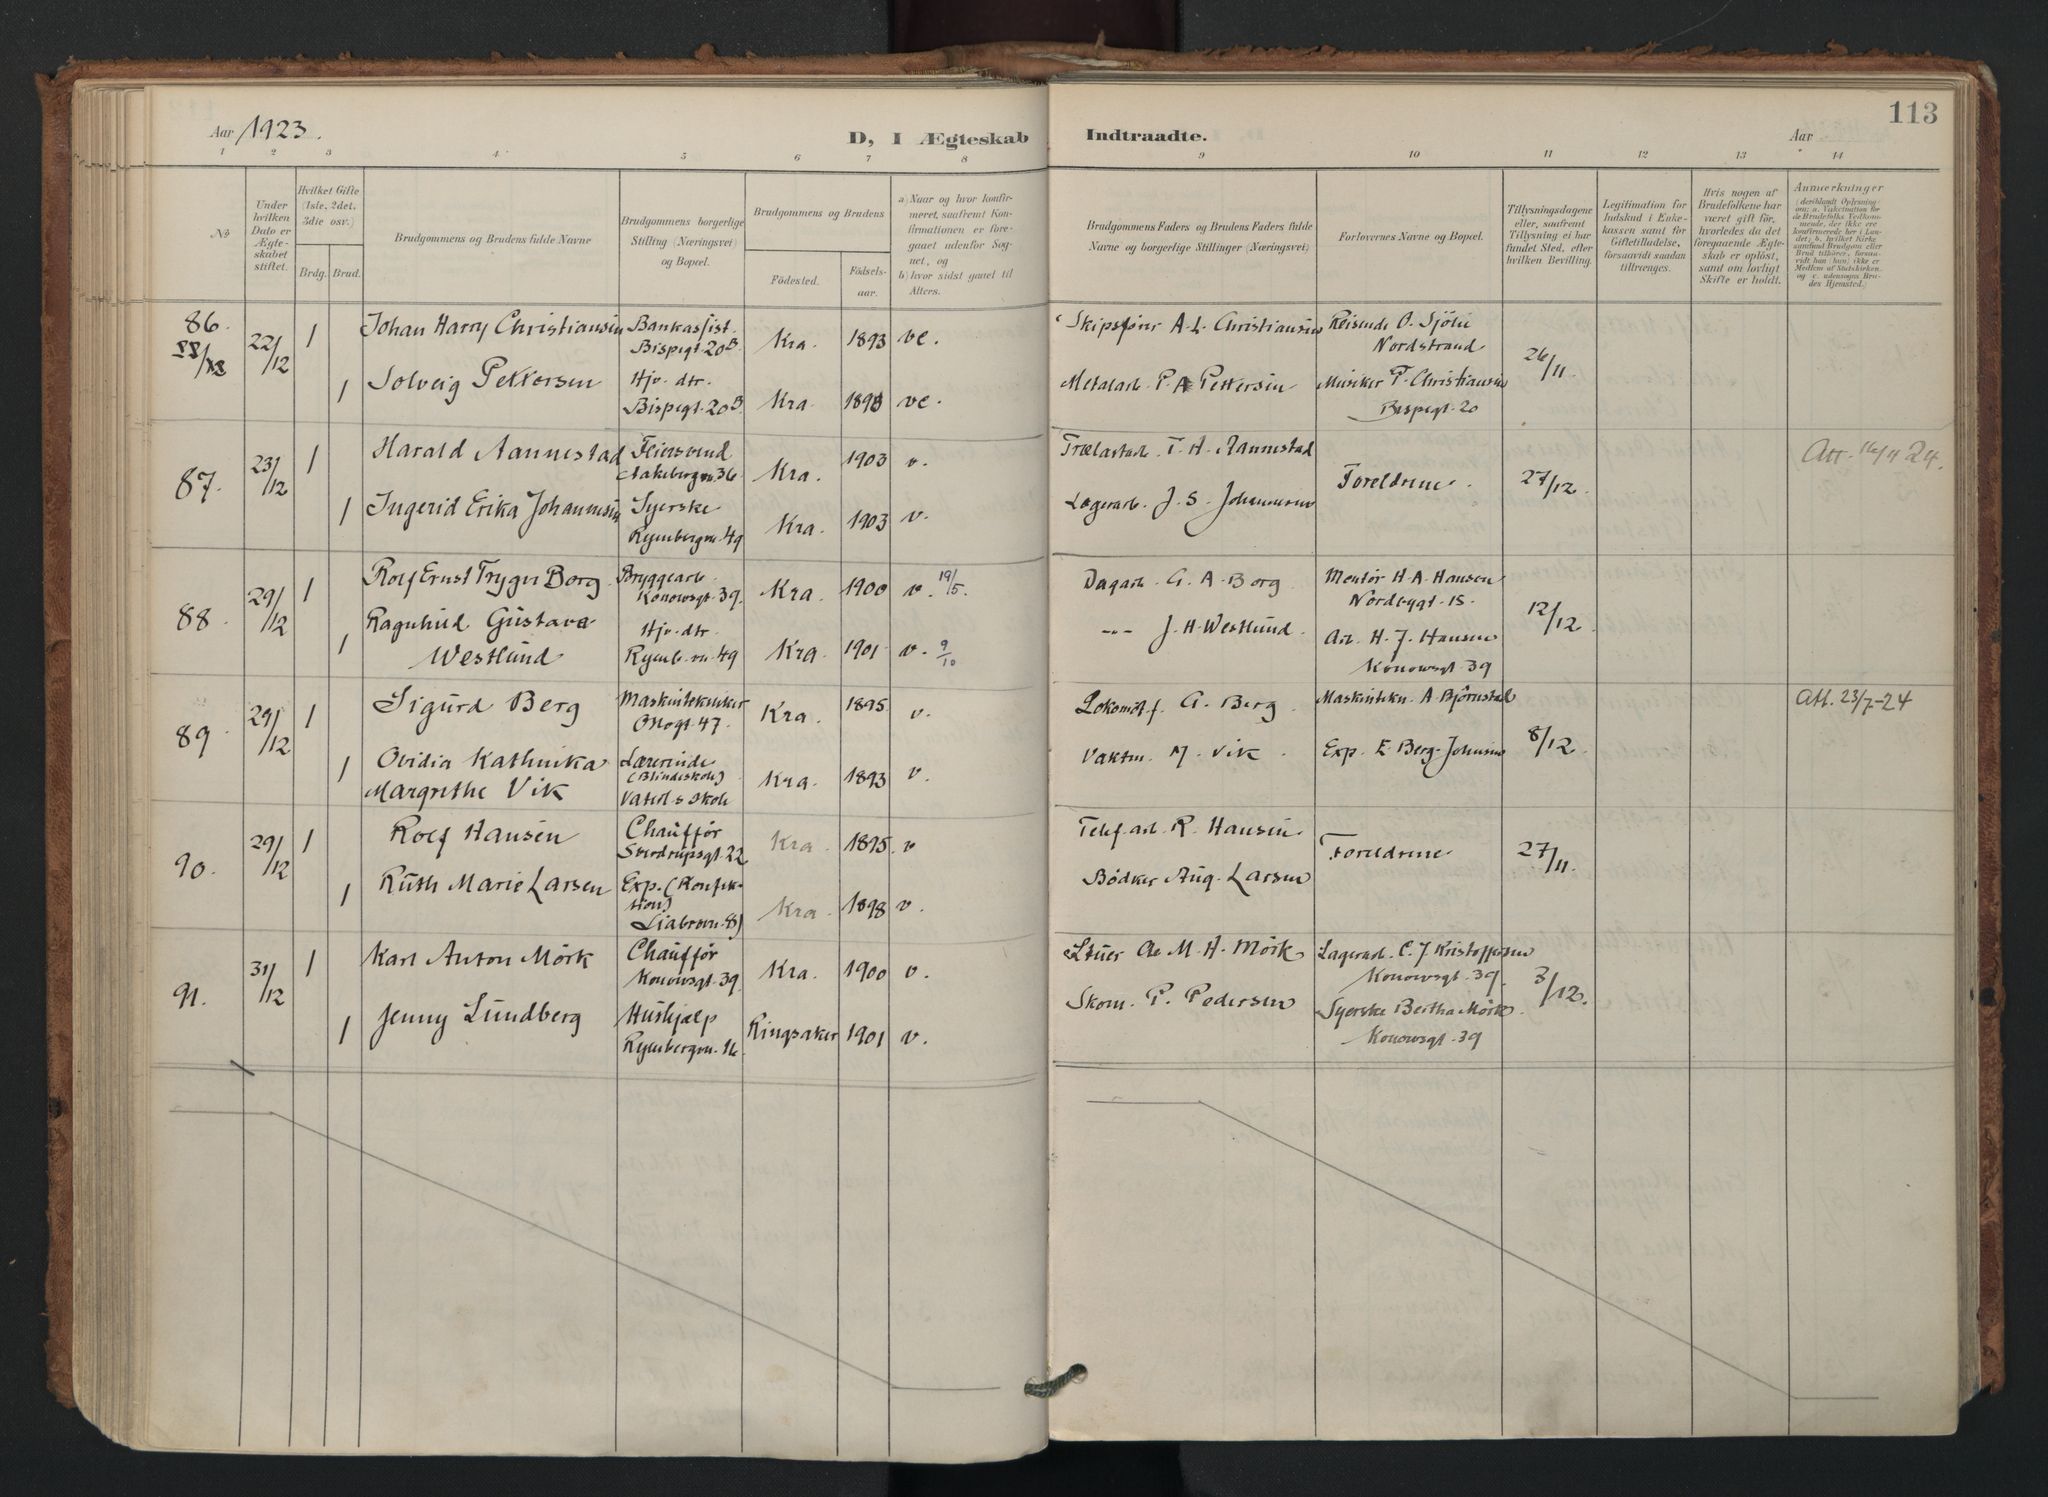 Aar 1923.
D, I Ægteskab Indtraadte.
Aar
113
1 2 3 4 5 6 7 8 9 10 11 12 13 14
No
Under hvilken Dato er Ægteskabet stiftet.
Hvilket Gifte (1ste, 2det, 3die osv.)
Brdg. Brud.
Brudgommens og Brudens fulde Navne
Brudgommens borgerlige Stilling (Næringsvei) og Bopæl.
Brudgommens og Brudens
Fødested. Fødselsaar.
a) Naar og hvor konfirmeret, saafremt Konfirmationen er foregaaet udenfor Sognet, og
b) hvor sidst gaaet til Alters.
Brudgommens Faders og Brudens Faders fulde Navne og borgerlige Stillinger (Næringsvei)
Forlovernes Navne og Bopæl.
Tillysningsdagene eller, saafremt Tillysning ei har fundet Sted, efter hvilken Bevilling.
Legitimation for Indskud i Enkekassen samt for Giftetilladelse, forsaavidt saadan tiltrænges.
Hvis nogen af Brudefolkene har været gift før, hvorledes da det foregaaende Ægteskab er opløst, samt om lovligt Skifte er holdt.
Anmærkninger
(deriblandt Oplysning om: a. Vakcination for de Brudefolks Vedkommende, der ikke ere konfirmerede her i Landet; b. hvilket Kirkesamfund Brudgom eller Brud tilhører, forsaavidt han (hun) ikke er Medlem af Statskirken, og c. udensogns Brudes Hjemsted.)
86. 22/12 1 Johan Harry Christiansen Bankassist. Bispegt. 20B Kra. 1893 ve. Skipsfører A. L. Christiansen Reisende O. Sjölie Nordstrand 26/11.
1 Solveig Pettersen Hjv. dtr. Bispegt. 20B Kra. 1893 ve. Metalarb. P. A. Pettersen Musiker F. Christiansen Bispegt. 20
87. 23/12 1 Harald Aannestad Feiersvend Aakebergvn. 36 Kra. 1903 v. Trælastarb. T. H. Aannestad Foreldrene. 27/12. Att. 16/4 24.
1 Ingerid Erika Johannesen Syerske Ryenbergvn. 49 Kra. 1903 v. Lagerarb. J. S. Johannesen
88. 29/12 1 Rolf Ernst Trygve Borg Bryggearb. Konowsgt. 39. Kra. 1900 v. 19/5. Dagarb. G. A. Borg Montör H. A. Hansen Nordbygt. 15. 12/12.
1 Ragnhild Gustava Westlund Hjv. dtr. Ryenb. vn. 49 Kra. 1901. v. 9/10 -"- J. H. Westlund. Arb. H. J. Hansen Konowsgt. 39
89. 29/12 1 Sigurd Berg Maskintekniker Oslogt. 47. Kra. 1895. v. Lokomotf. G. Berg. Maskintekn. A. Bjørnstad 8/12. Att. 23/7-24
1 Ovidia Kathinka Margrethe Vik Lærerinde (Blindeskole) Vaterl.s skole Kra. 1893 v. Vaktm. M. Vik. Exp. E. Berg-Johnsen
90. 29/12 1 Rolf Hansen Chauffør Sverdrupsgt. 22 Kra. 1895. v. Telef. arb. R. Hansen. Foreldrene 27/11.
1 Ruth Marie Larsen Exp. (Konfektion) Liabrovn. 8) Kra. 1898 v. Bödker Aug. Larsen
91. 31/12 1 Karl Anton Mörk Chauffør Konowsgt. 39. Kra. 1900 v. Stuer M. H. Mörk Lagerarb. C. J. Kristoffersen Konowsgt. 39. 3/12.
1 Jenny Lundberg Hushjælp Ryenbergvn. 16. Ringsaker 1901 v. Skom. P. Pedersen Syerske Bertha Mörk Konowsgt. 39